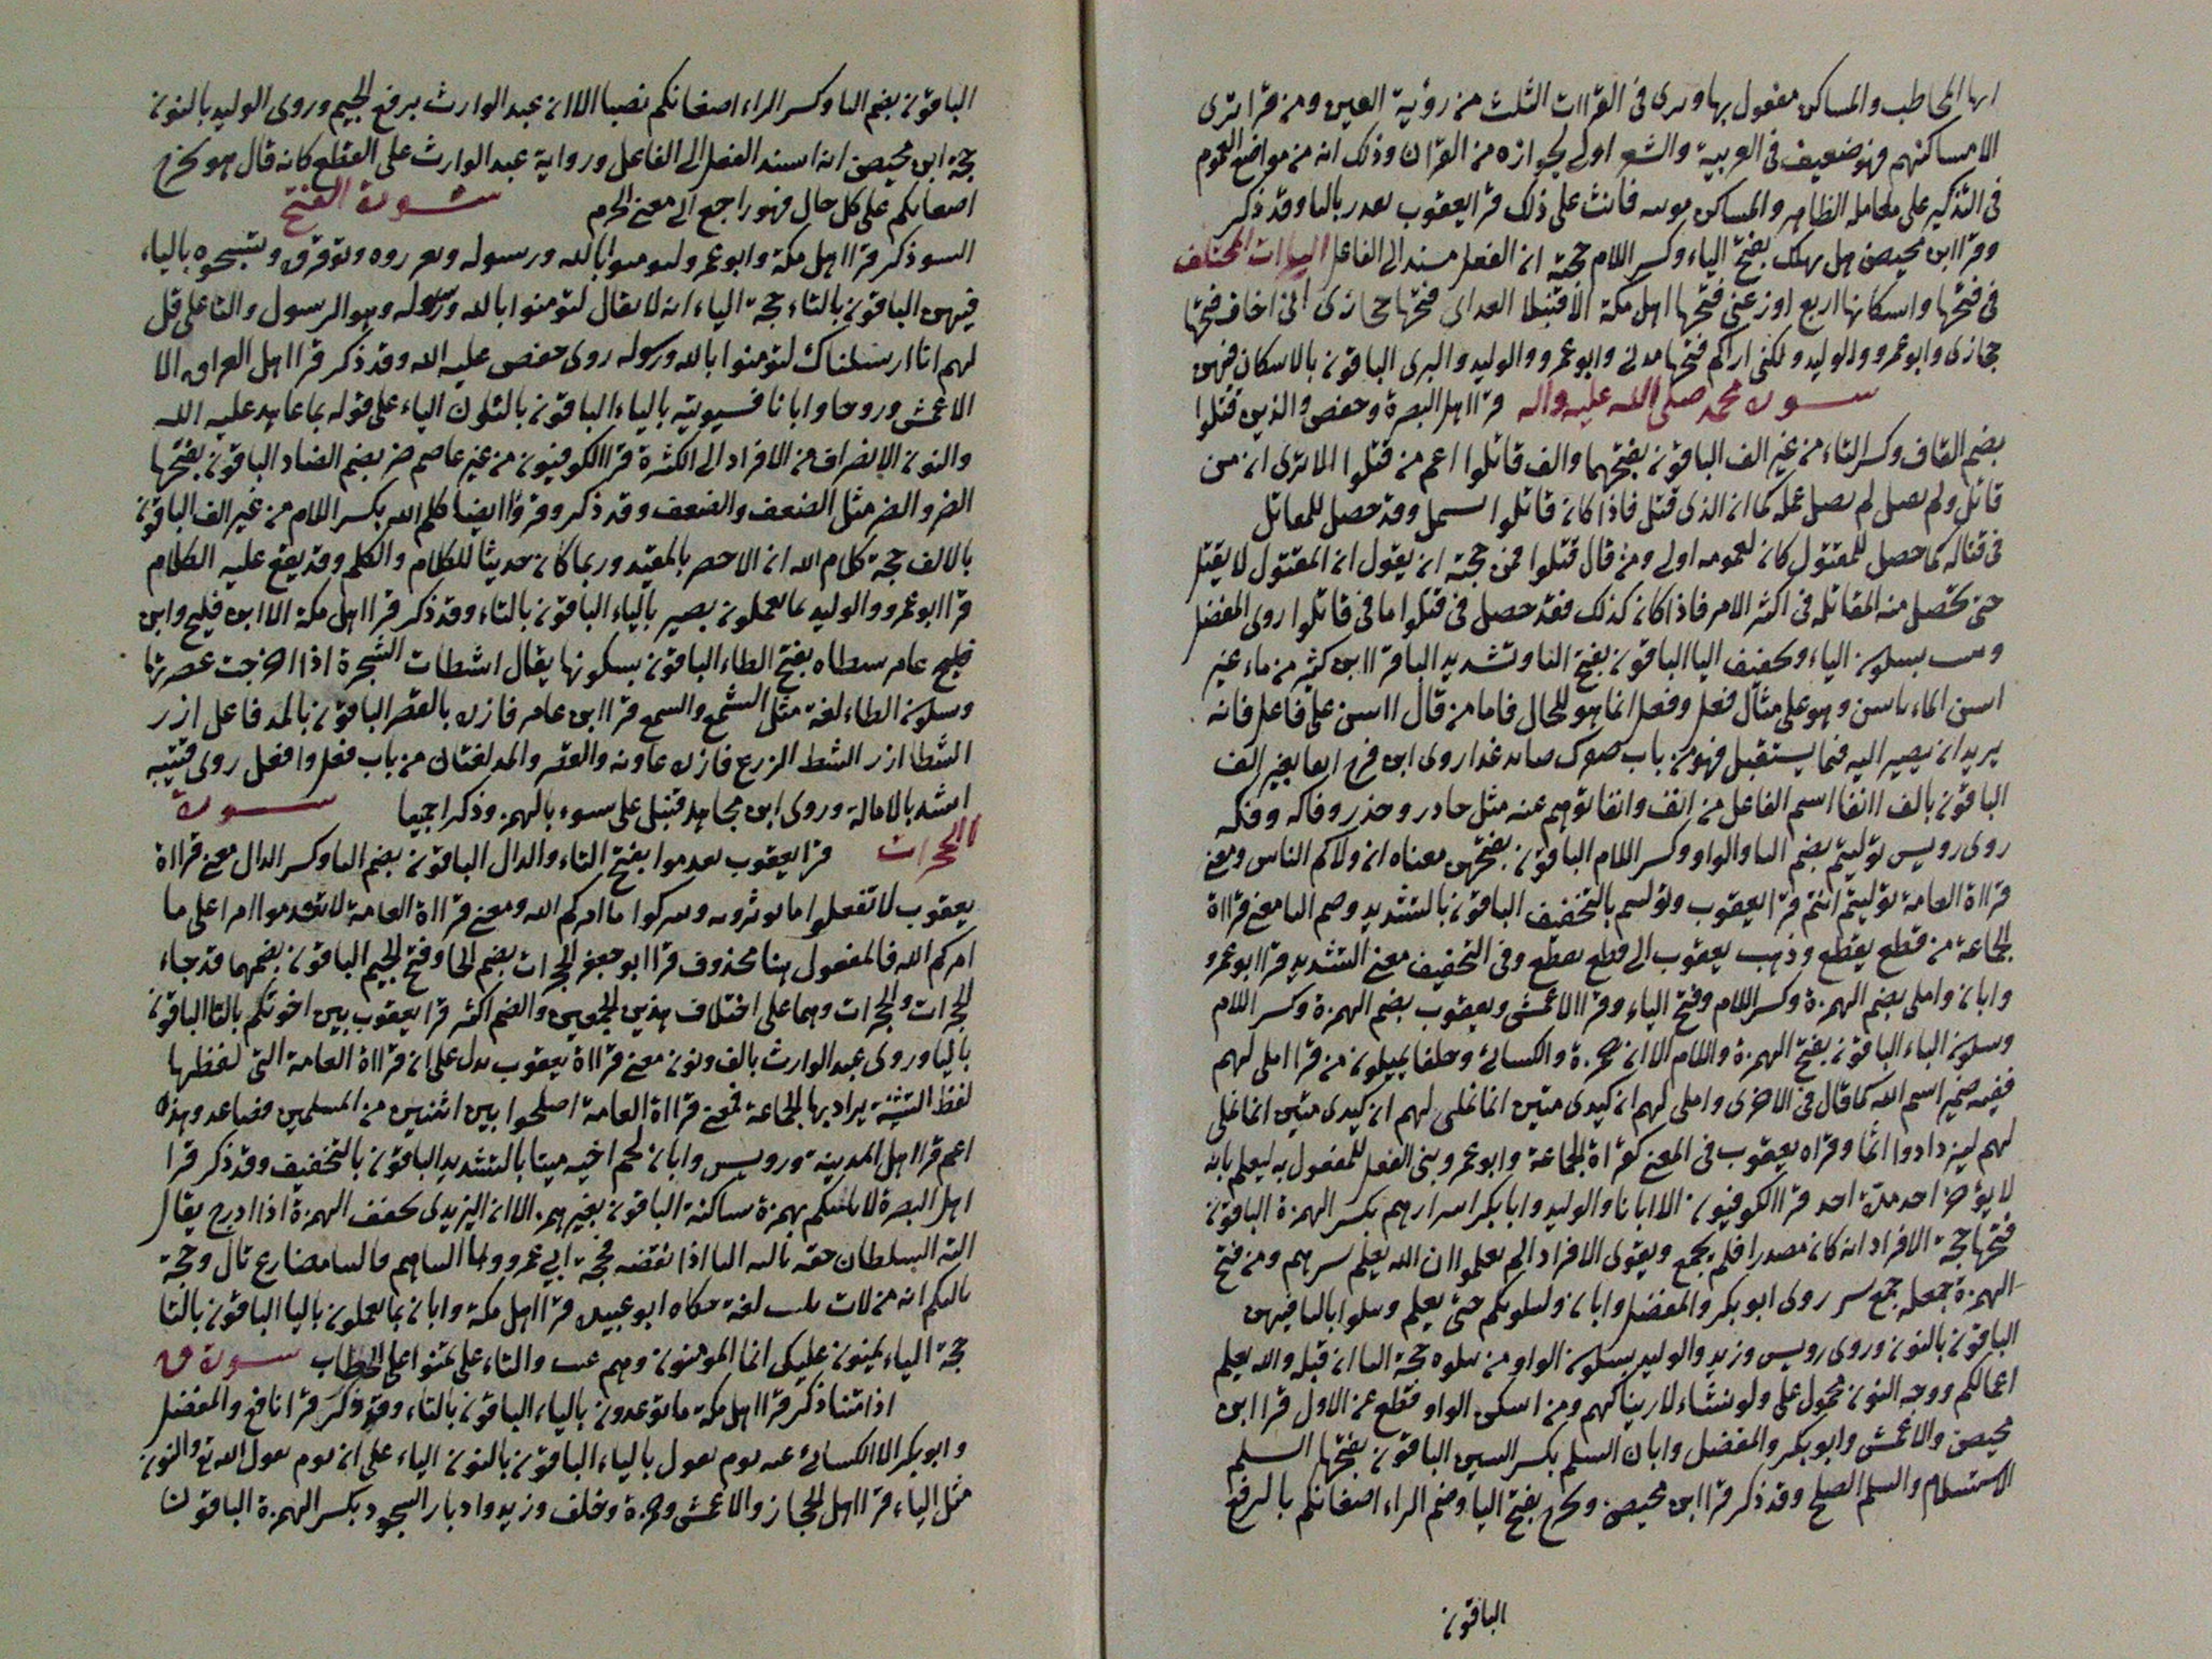 ايها المخاطب والمساكن مفعول بها وترى في القراات الثلث من رؤية العين ومن قرا ترى
الا مساكنهم فهو ضعيف في العربية والشعر اولى بجوازه من القران وذلك انه من مواضع العموم
في التذكير على معامله الظاهر والمساكن مونثه فانث على ذلك قرا يعقوب يقدر بالياء وقد ذكر
وقرا ابن محيصن هل يهلك بفتح الياء وكسر اللام حجته ان الفعل مسند الى الفاعل الياءات المختلف
في فتحها واسكانها اربع اوزعني فتحها اهل مكة الا قنبلا اتعدانني فتحها حجازى انى اخاف فتحها
حجازى وابو عمرو والوليد ولكنى اراكم فتحها مدنى وابو عمرو والوليد والبزى الباقون بالاسكان فيهن
سورة محمد صلى الله عليه واله قرا اهل البصرة وحفص والذين قتلوا
بضم القاف وكسر التاء من غير الف الباقون بفتحهما والف قاتلوا اعم من قتلوا الا ترى ان من
قاتل ولم يقتل لم يضل عمله كما ان الذى قتل فاذا كان قاتلوا يشمل وقد حصل للمقاتل
في قتاله كما حصل للمقتول كان لعمومه اولى ومن قال قتلوا فمن حجته ان يقول ان المقتول لا يقتل
حتى تحصل منه المقاتلة في اكثر الامر فاذا كان كذلك فقد حصل في قتلوا ما في قاتلوا روى المفضل
ويثبت بسكون الثاء وتخفيف الباء الباقون بفتح الثا وتشديد الباء قرا ابن كثير من ماء غير
اسن الماء ياسن وهو على مثال فعل وفعل انما هو للحال فاما من قال اسن على فاعل فانه
يريد ان يصير اليه فيما يستقبل فهو من باب صائد غدا روى ابن فرح انفا بغير الف
الباقون بالف انفا اسم الفاعل من انف وانفا توهم عنه مثل حاذر وحذر وفاكه وفكه
روى رويس توليتم بضم التا والواو وكسر اللام الباقون بفتحهن معناه ان ولاكم الناس ومعنى
قراة العامة توليتم انتم قرا يعقوب وتقطعوا بالتخفيف الباقون بالتشديد وضم التا معنى قراة
الجماعة من قطع يقطع وذهب يعقوب الى قطع يقطع وفي التخفيف معنى التشديد قرا ابو عمرو
وابان واملى بضم الهمزة وكسر اللام وفتح الياء وقرا الاعمش ويعقوب بضم الهمزة وكسر اللام
وسكون الياء الباقون بفتح الهمزة واللام الا ان حمزة والكسائى وخلفا يميلون من قرا املى لهم
ففيه ضمير اسم الله كما قال في الاخرى واملى لهم ان كيدى متين انما نملى لهم ان كيدى متين انما نملى
لهم ليزدادوا اثما وقراه يعقوب في المعنى كقراة الجماعة وابو عمرو بنى الفعل للمفعول به ليعلم بانه
لا يؤخر احد مدة احد قرا الكوفيون الا ابانا والوليد وابا بكر اسرارهم بكسر الهمزة الباقون
فتحها حجة الافراد انه كان مصدرا فلم يجمع ويقوى الافراد الم يعلموا ان الله يعلم سرهم ومن فتح
الهمزة جعله جمع سر روى ابو بكر والمفضل وابان وليبلونكم حتى يعلم ويبلوا بالياء فيهن
الباقون بالنون وروى رويس وزيد والوليد بسكون الواو من نبلوه حجة الياء ان قبله والله يعلم
اعمالكم ووجه النون محمول على ولو نشاء لاريناكهم ومن اسكن الواو قطع من الاول قرا ابن
محيصن والاعمش وابو بكر والمفضل وابان السلم بكسر السين الباقون بفتحها السلم
الاستسلام والسلم الصلح وقد ذكر قرا ابن محيصن ويخرج بفتح اليا وضم الراء اضغانكم بالرفع
الباقون
الباقون بضم اليا وكسر الراء اضغانكم نصبا الا ان عبد الوارث يرفع الجيم وروى الوليد بالنون
حجة ابن محيصن انه اسند الفعل الى الفاعل ورواية عبد الوارث على القطع كانه قال هو يخرج
اضغانكم على كل حال فهو راجع الى معنى الجزم سورة الفتح
السوء ذكر قرا اهل مكة وابو عمرو ليومنوا بالله ورسوله ويعزروه ويوقروه ويسبحوه بالياء
فيهن الباقون بالتاء حجة الياء انه لا يقال لتومنوا بالله ورسوله وهو الرسول والتا على قل
لهم انا ارسلناك لتومنوا بالله ورسوله روى حفص عليه الله وقد ذكر قرا اهل العراق الا
الاعمش وروحا وابانا فسيوتيه بالياء الباقون بالنون الياء على قوله بما عاهد عليه الله
والنون الانصراف من الافراد الى الكثرة قرا الكوفيون من غير عاصم ضرا بضم الضاد الباقون بفتحها
الضر والضر مثل الضعف والضعف وقد ذكر وقرؤا ايضا كلم الله بكسر اللام من غير الف الباقون
بالالف حجة كلام الله ان الاخص بالمقيد وربما كان حديثا للكلام والكلم وقد يقع عليه الكلام
قرا ابو عمرو والوليد بما يعملون بصير بالياء الباقون بالتاء وقد ذكر قرا اهل مكة الا ابن فليح وابن
خليع عامر شطاه بفتح الطاء الباقون بسكونها يقال اشطات الشجرة اذا اخرجت غصونها
وسكون الطاء لغة مثل الشمع والسمع قرا ابن عامر فازره بالقصر الباقون بالمد فاعل ازر
الشطا ازر الشط الزرع فازره عاونه والقصر والمد لغتان من باب فعل وافعل روى قتيبة
اشداء بالامالة وروى ابن مجاهد قنبل على سوءه بالهمز وذكرا جميعا سورة
الحجرات قرا يعقوب تقدموا بفتح التاء والدال الباقون بضم التا وكسر الدال معنى قراة
يعقوب لا تفعلوا ما توثرونه وتتركوا ما امركم الله ومعنى قراة العامة لا تقدموا امرا على ما
امركم الله فالمفعول هنا محذوف قرا ابو جعفر الحجرات بضم الحا وفتح الجيم الباقون بضمهما قد جاء
الحجرات والحجرات وهما على اختلاف هذين الجمعين والضم اكثر قرا يعقوب بين اخوتكم بالتا الباقون
باليا وروى عبد الوارث بالف ونون معنى قراة يعقوب يدل على ان قراة العامة التى لفظها
لفظ التثنية يراد بها الجماعة فمعنى قراة العامة اصلحوا بين اثنين من المسلمين فصاعدا وهذه
اعم قرا اهل المدينة ورويس وابان لحم اخيه ميتا بالتشديد الباقون بالتخفيف وقد ذكر قرا
اهل البصرة لا يالتكم بهمزة ساكنة الباقون بغير همز الا ان اليزيدى يخفف الهمزة اذا ادرج يقال
التة السلطان حقه يالته التا اذا نقصه فحجة ابى عمرو وما التناهم فالتنا مضارع تالت وحجة
يلتكم انه من لات يليت لغة حكاه ابو عبيد قرا اهل مكة وابان بما يعملون باليا الباقون بالتا
حجة الياء يمنون عليك انما المومنون وهم غيب والتاء على تمنوا على الخطاب سورة ق
اذا متنا ذكر قرا اهل مكة ما توعدون بالياء الباقون بالتاء وقد ذكر قرا نافع والمفضل
وابو بكر الا الكسائى عنه يوم يقول بالياء الباقون بالنون الياء على ان يوم يقول الله تع والنون
مثل الياء قرا اهل الحجاز والاعمش وحمزة وخلف وزيد وادبار السجود بكسر الهمزة الباقون